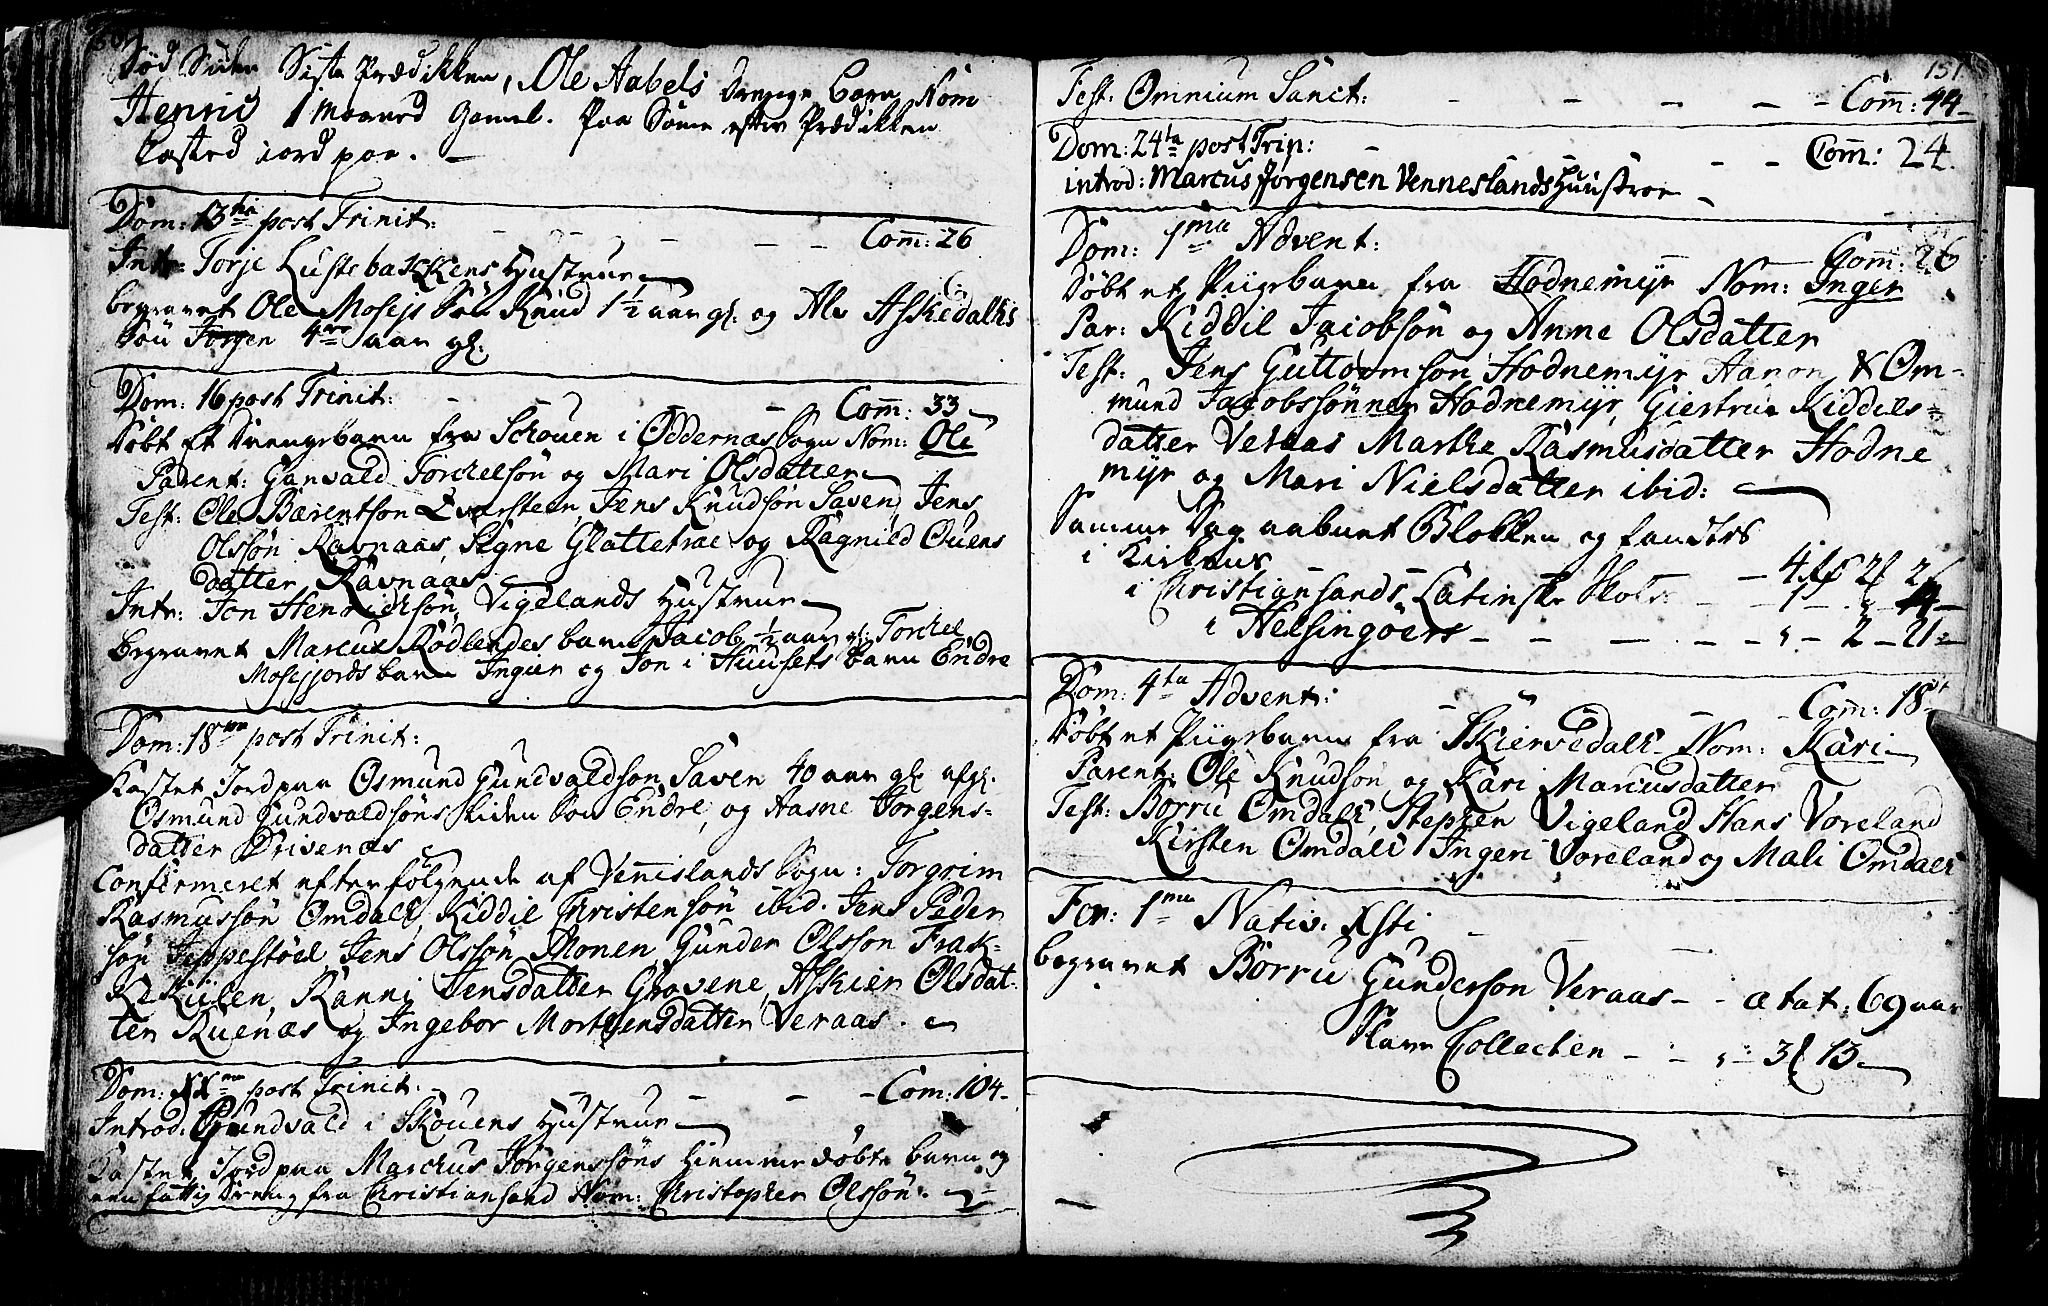 Død Siden Siste Prædikken, Ole Aabels Drenge barn Nom
Henric 1 Maaned Gamel. Paa Same efter Prædikken
Casted iord paa. —
Dom: 13tia post Trinit: — — — — — Com̅: 26
Intr: Torje Lustebakkens Hustrue
begravet Ole Mosejs Søn Knud 1½ aar gl. og Alv Askedalls
Søn Jørgen 4re aar gl.
Dom: 16 post Trinit: — — — Com̅: 33
Døbt Et Drengebarn fra Schouen i Oddernæs Sogn Nom: Ole
Parent: Gunvald Torchelsøn og Mari Olsdatter
Test: Ole Bærentson Qvarsteen, Jens Knudsøn Saven, Jens
Olssøn Ravnaas, Signe Glattetræ og Ragnild Ouens
datter Ravnaas
Intr: Jon Henrichsøn Vigelands Hustrue
begravet Marcus Rødlendes barn Jacob ½ aar gl. Torchel
Mosejjords barn Ingier og Jon i Huusets barn Endre
Dom: 18va post Trinit:
Kastet Jord paa Osmund Gundvaldsøn Saven 40 aar gl. afgl.
Osmund Gundvaldsøns liden Søn Endre, og Aasne Jørgens-
datter Drivenæs
Confirmeret efterfølgende af Vennislands Sogn: Torgrim
Rasmussøn Omdall, Kiddil Christensøn ibid. Jens Peder
søn Jeppestøel Jens Olssøn Monen, Gunder Olsson Frak-
Kekiilen, Ranni Jensdatter Grovene, Askier Olsdat-
ter Ruenæs og Ingebor Mortensdatter Veraas.
Dom: XXma post Trinit: — — — Com: 104
Introd: Gundvald i Skouens Hustrue
Castet Jord paa Marchus Jørgenssøns hiemmedøbte barn og
een fattig Dreng fra Christiansand Nom: Christopher Olssøn.
151.
Fest: Omnium Sanct: — — — — — Com̅: 44
Dom: 24ta post Trin: — — — — Com̅: 24.
introd: Marcus Jørgensen Venneslands Huustroe
Dom: 1ma Advent: Com̅: 26
Døbt et Piigebarn fra Hodnemyr Nom: Inger
Par: Kiddil Jacobsøn og Anne Olsdatter
Test: Jens Guttormsøn Hodnemyr Aanon & Om-
mund Jacobssønner Hodnemyr, Giertrue Kiddels-
datter Veraas Marthe Rasmusdatter Hodne
myr og Mari Nielsdatter ibid:
Samme Dag aabnet Blokken og fandtes
i Kirkens — 4 2 2
i Christiansands Latinske Skole
i Helsingøers — — — — — 2 — 21
Dom: 4ta Advent: — — Com: 18
Døbt et Piigebarn fra Skiervedall Nom: Kari
Parent: Ole Knudsøn og Kari Marcusdatter
Test: Børru Omdall, Stephen Vigeland Hans Voreland
Kirsten Omdall Ingeri Voreland og Mali Omdall
Fer: 1ma Nativ: Xsti — — —
begravet Børru Gundersøn Veraas — ætat: 69 aar
Slave Collecten — — 3 13